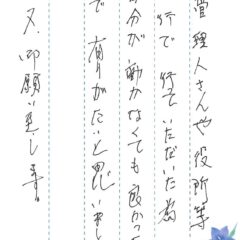 管理人さんや役所等
行で 行ていただいた為
自分が 動かなくても良かった
で 有りがたいと思いまし
又、御願い致します。